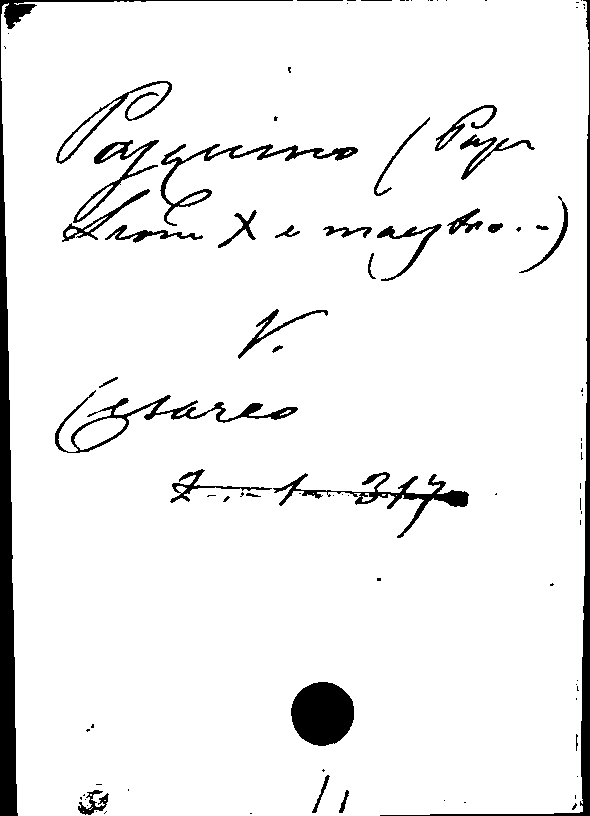 Pasquino (Papa
Leone X e maestro..)
V.
Cesareo
Z. 1. 317